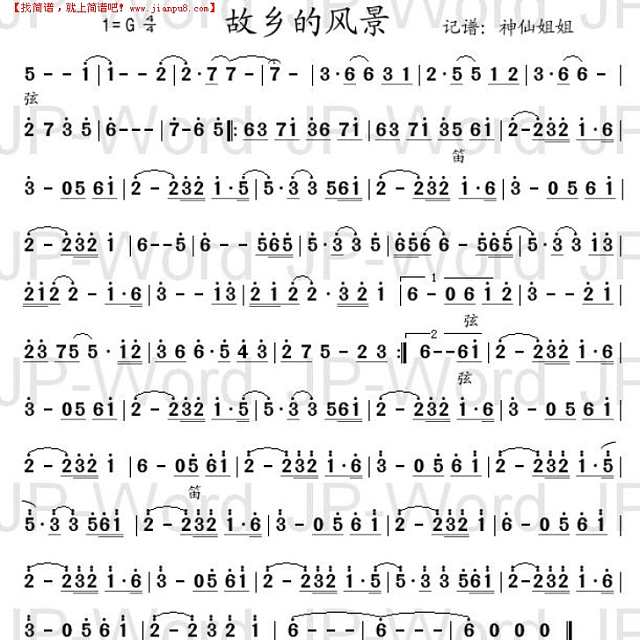 【找简谱，就上简谱吧! www.jianpu8.com】
1=G 4/4 故乡的风景 记谱：神仙姐姐
5 - - 1 | 1 - - 2 | 2 · 7 7 - | 7 - - | 3 · 6 6 3 1 | 2 · 5 5 1 2 | 3 · 6 6 - |
弦
2 7 3 5 | 6 - - - | 7 - 6 5 ‖: 63 71 36 71 | 63 71 35 61 | 2 - 232 1 · 6 |
笛
3 - 05 61 | 2 - 232 1 · 5 | 5 · 3 3 561 | 2 - 232 1 · 6 | 3 - 05 61 |
2 - 232 1 | 6 - - 5 | 6 - - 565 | 5 · 3 3 5 | 656 6 - 565 | 5 · 3 3 13 |
212 2 - 1 · 6 | 3 - - 13 | 212 2 · 32 1 | 1 6 - 06 1 | 3 - - 21 |
弦
23 75 5 · 12 | 3 6 6 · 5 4 3 | 2 7 5 - 2 3 :‖ 2 6 - - 61 | 2 - 232 1 · 6 |
弦
3 - 05 61 | 2 - 232 1 · 5 | 5 · 3 3 561 | 2 - 232 1 · 6 | 3 - 05 61 |
2 - 232 1 | 6 - 05 61 | 2 - 232 1 · 6 | 3 - 05 61 | 2 - 232 1 · 5 |
笛
5 · 3 3 561 | 2 - 232 1 · 6 | 3 - 05 61 | 2 - 232 1 · 6 | 3 - 05 61 |
2 - 232 1 · 6 | 3 - 05 61 | 2 - 232 1 · 5 | 5 · 3 3 561 | 2 - 232 1 · 6 |
3 - 05 61 | 2 - 232 1 | 6 - - - | 6 - - - | 6 0 0 0 ‖
JP-Word JP-Word JP